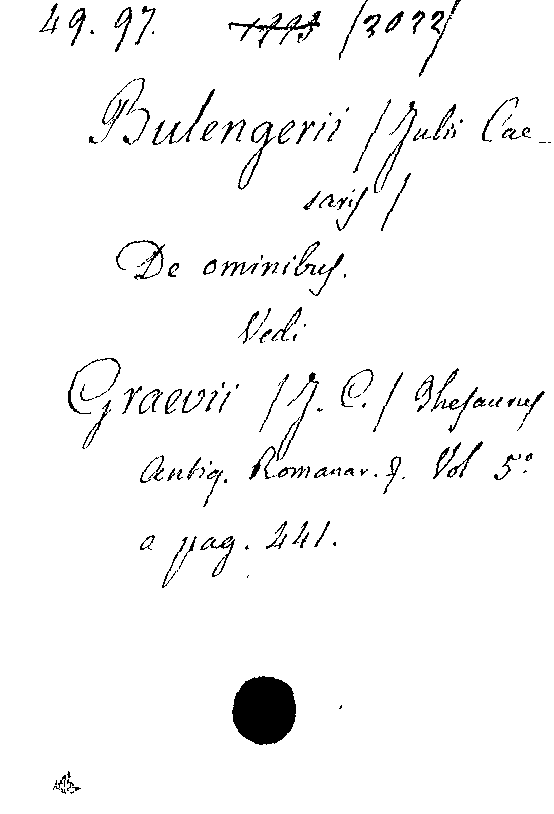 49. 97. 1993 /3022/
Bulengerii /Julii Cae-
saris /
De ominibus.
Vedi
Graevii /J. C./ Thesaurus
Antiq. Romanar. &. Vol 5°
a pag. 441.